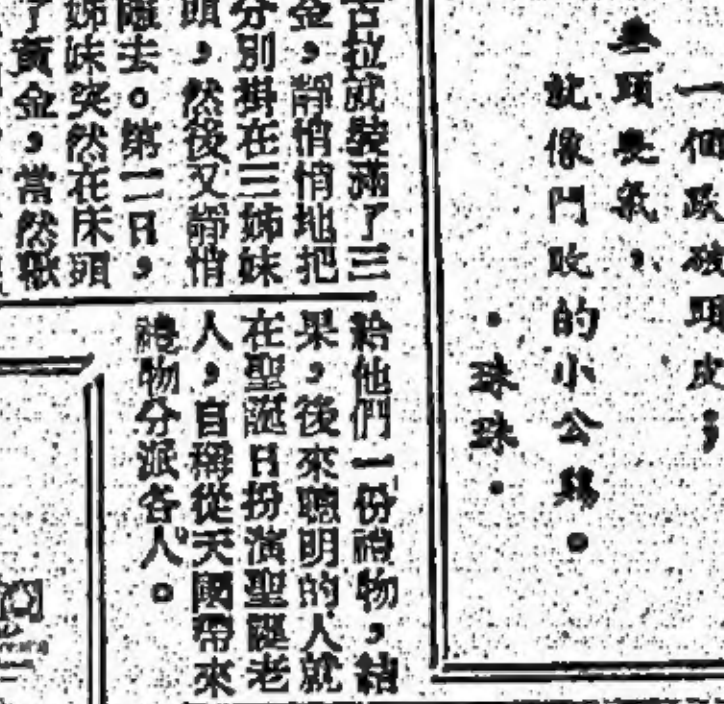 一個跌破頭皮,
垂頭喪氣,
就像鬥敗的小公鷄。
・珠珠・
古拉就裝滿了三
金,靜悄悄地把
分別掛在三姊妹
頭,然後又靜悄
離去。第二日,
姊妹突然在床頭
了黃金,當然歡
給他們一份禮物,結
果,後來聰明的人就
在聖誕日扮演聖誕老
人,自稱從天國帶來
禮物分派各人。